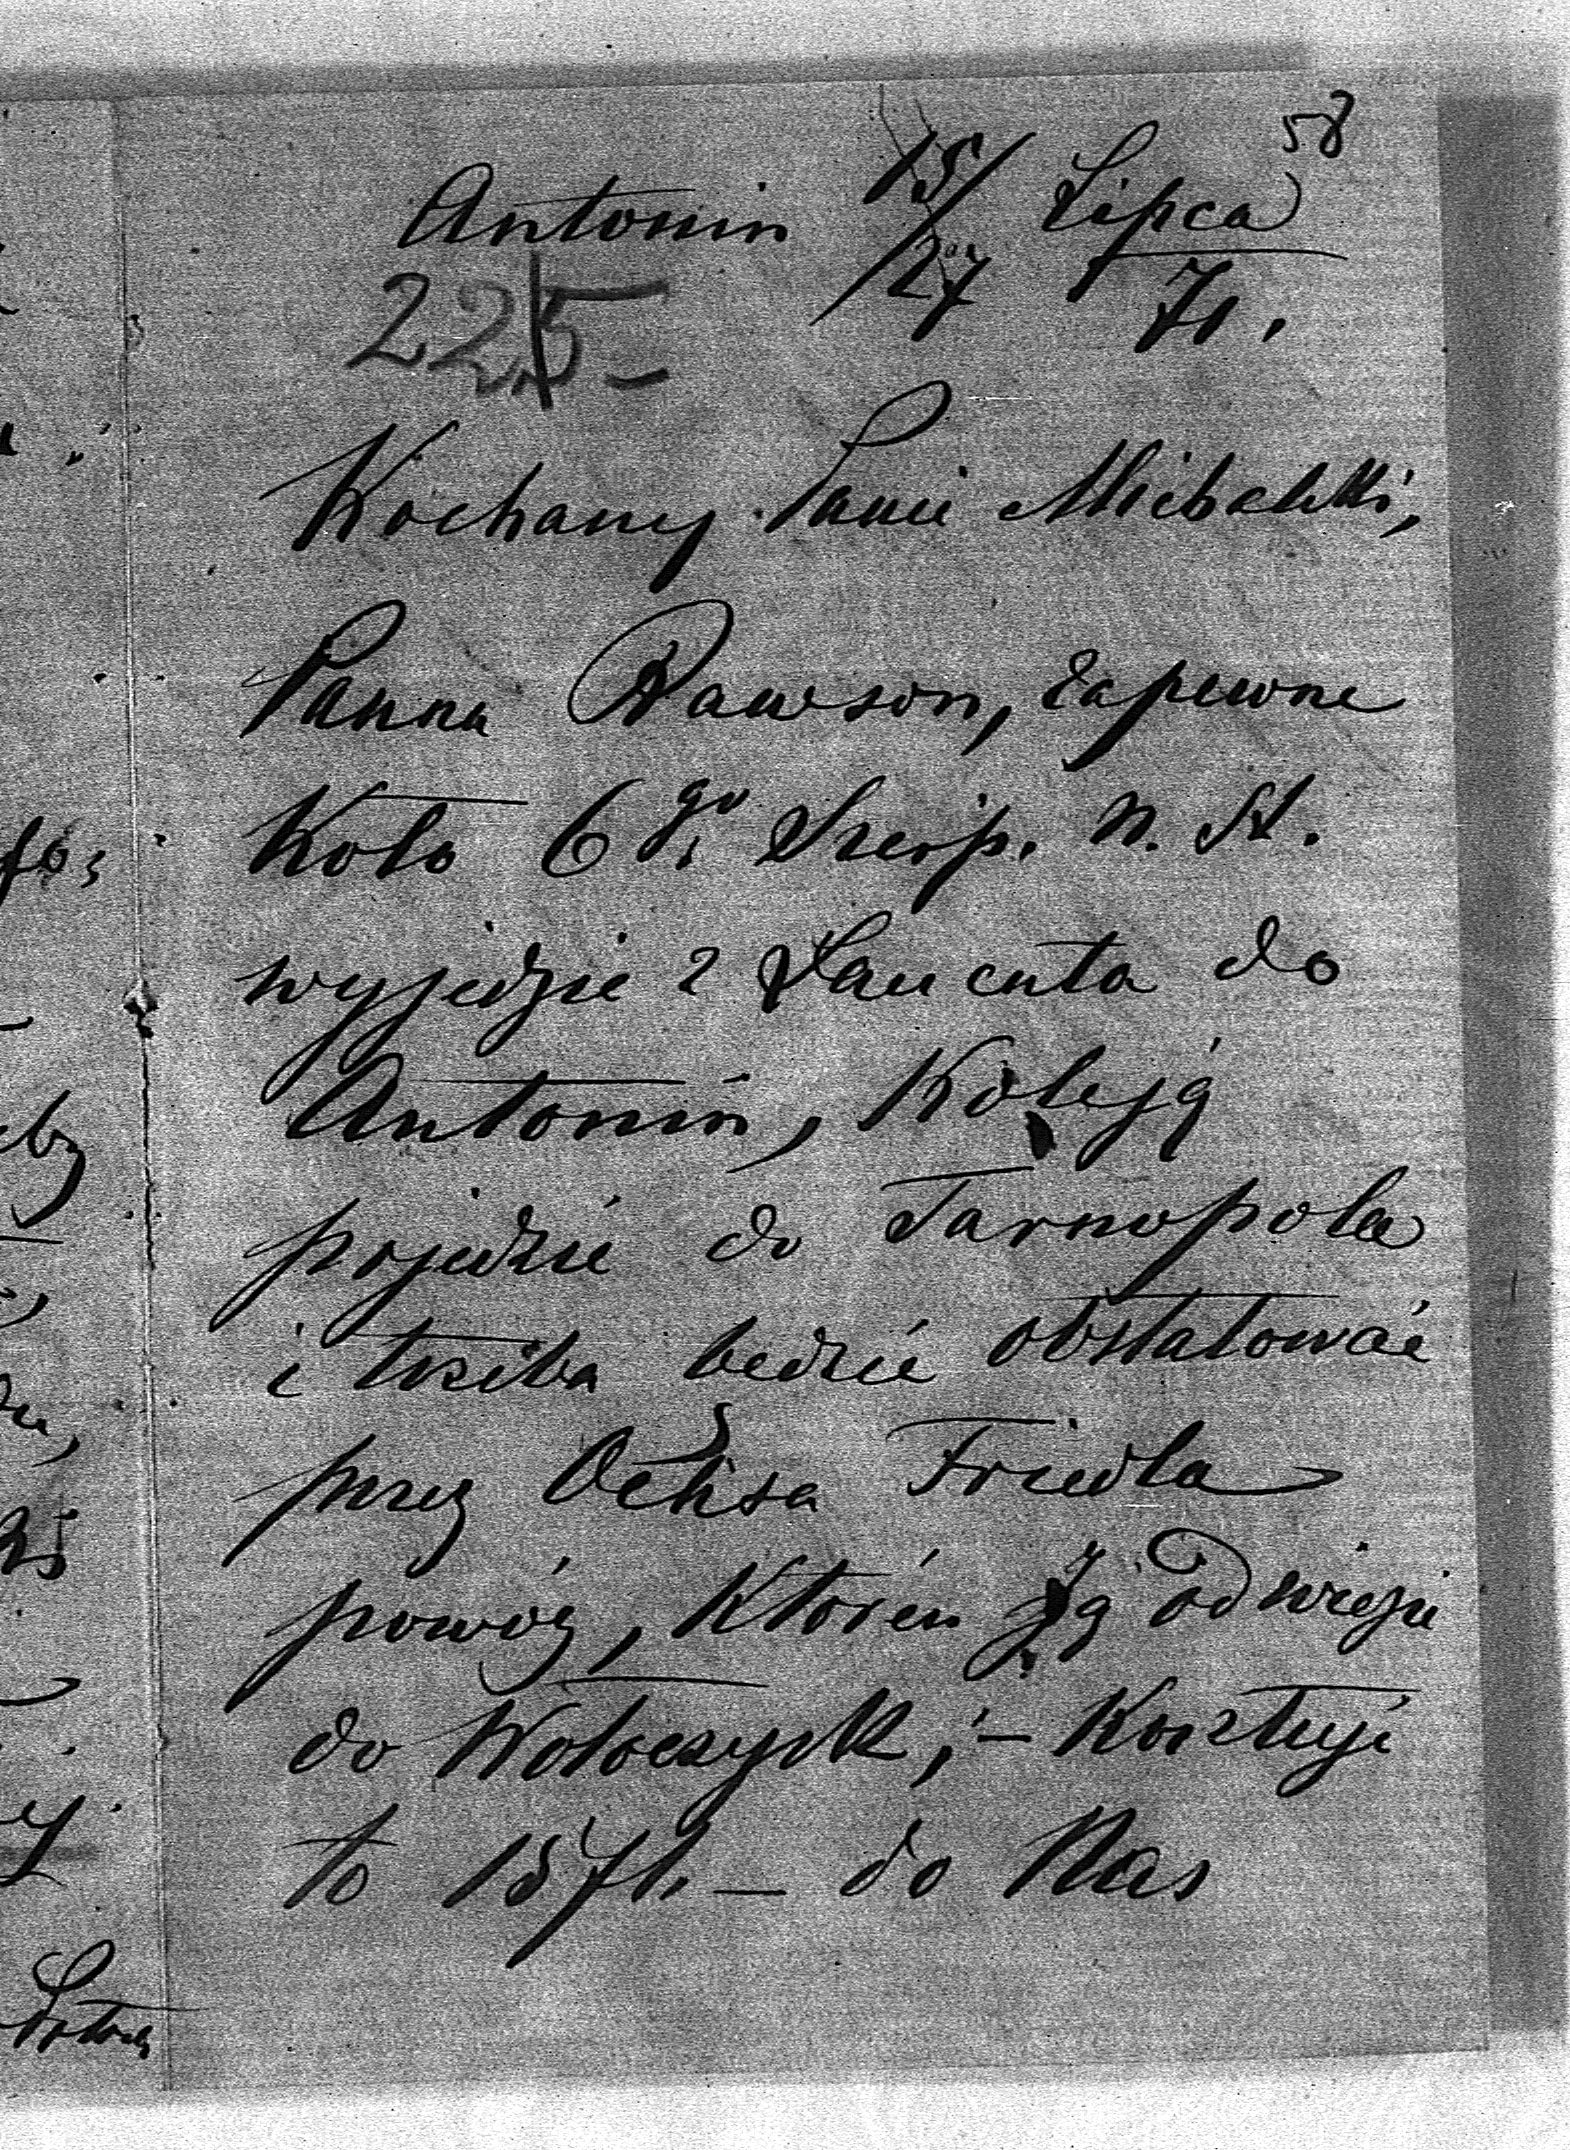 58
Antonin 15/27 Lipca 71.
225-
Kochany Panie
Panna Rawson, zapewne
Koło 6go Sierp. n. st.
wyjedzie z Łańcuta do
Antonin, Koleją
pojedzie do Tarnopola
i trzeba bedzie obstalować
przez Ochsa Friedla
powóz, Któren Ją odwiezie
do Wołoczysk; - Kosztuje
to 15 fl. - do Nas